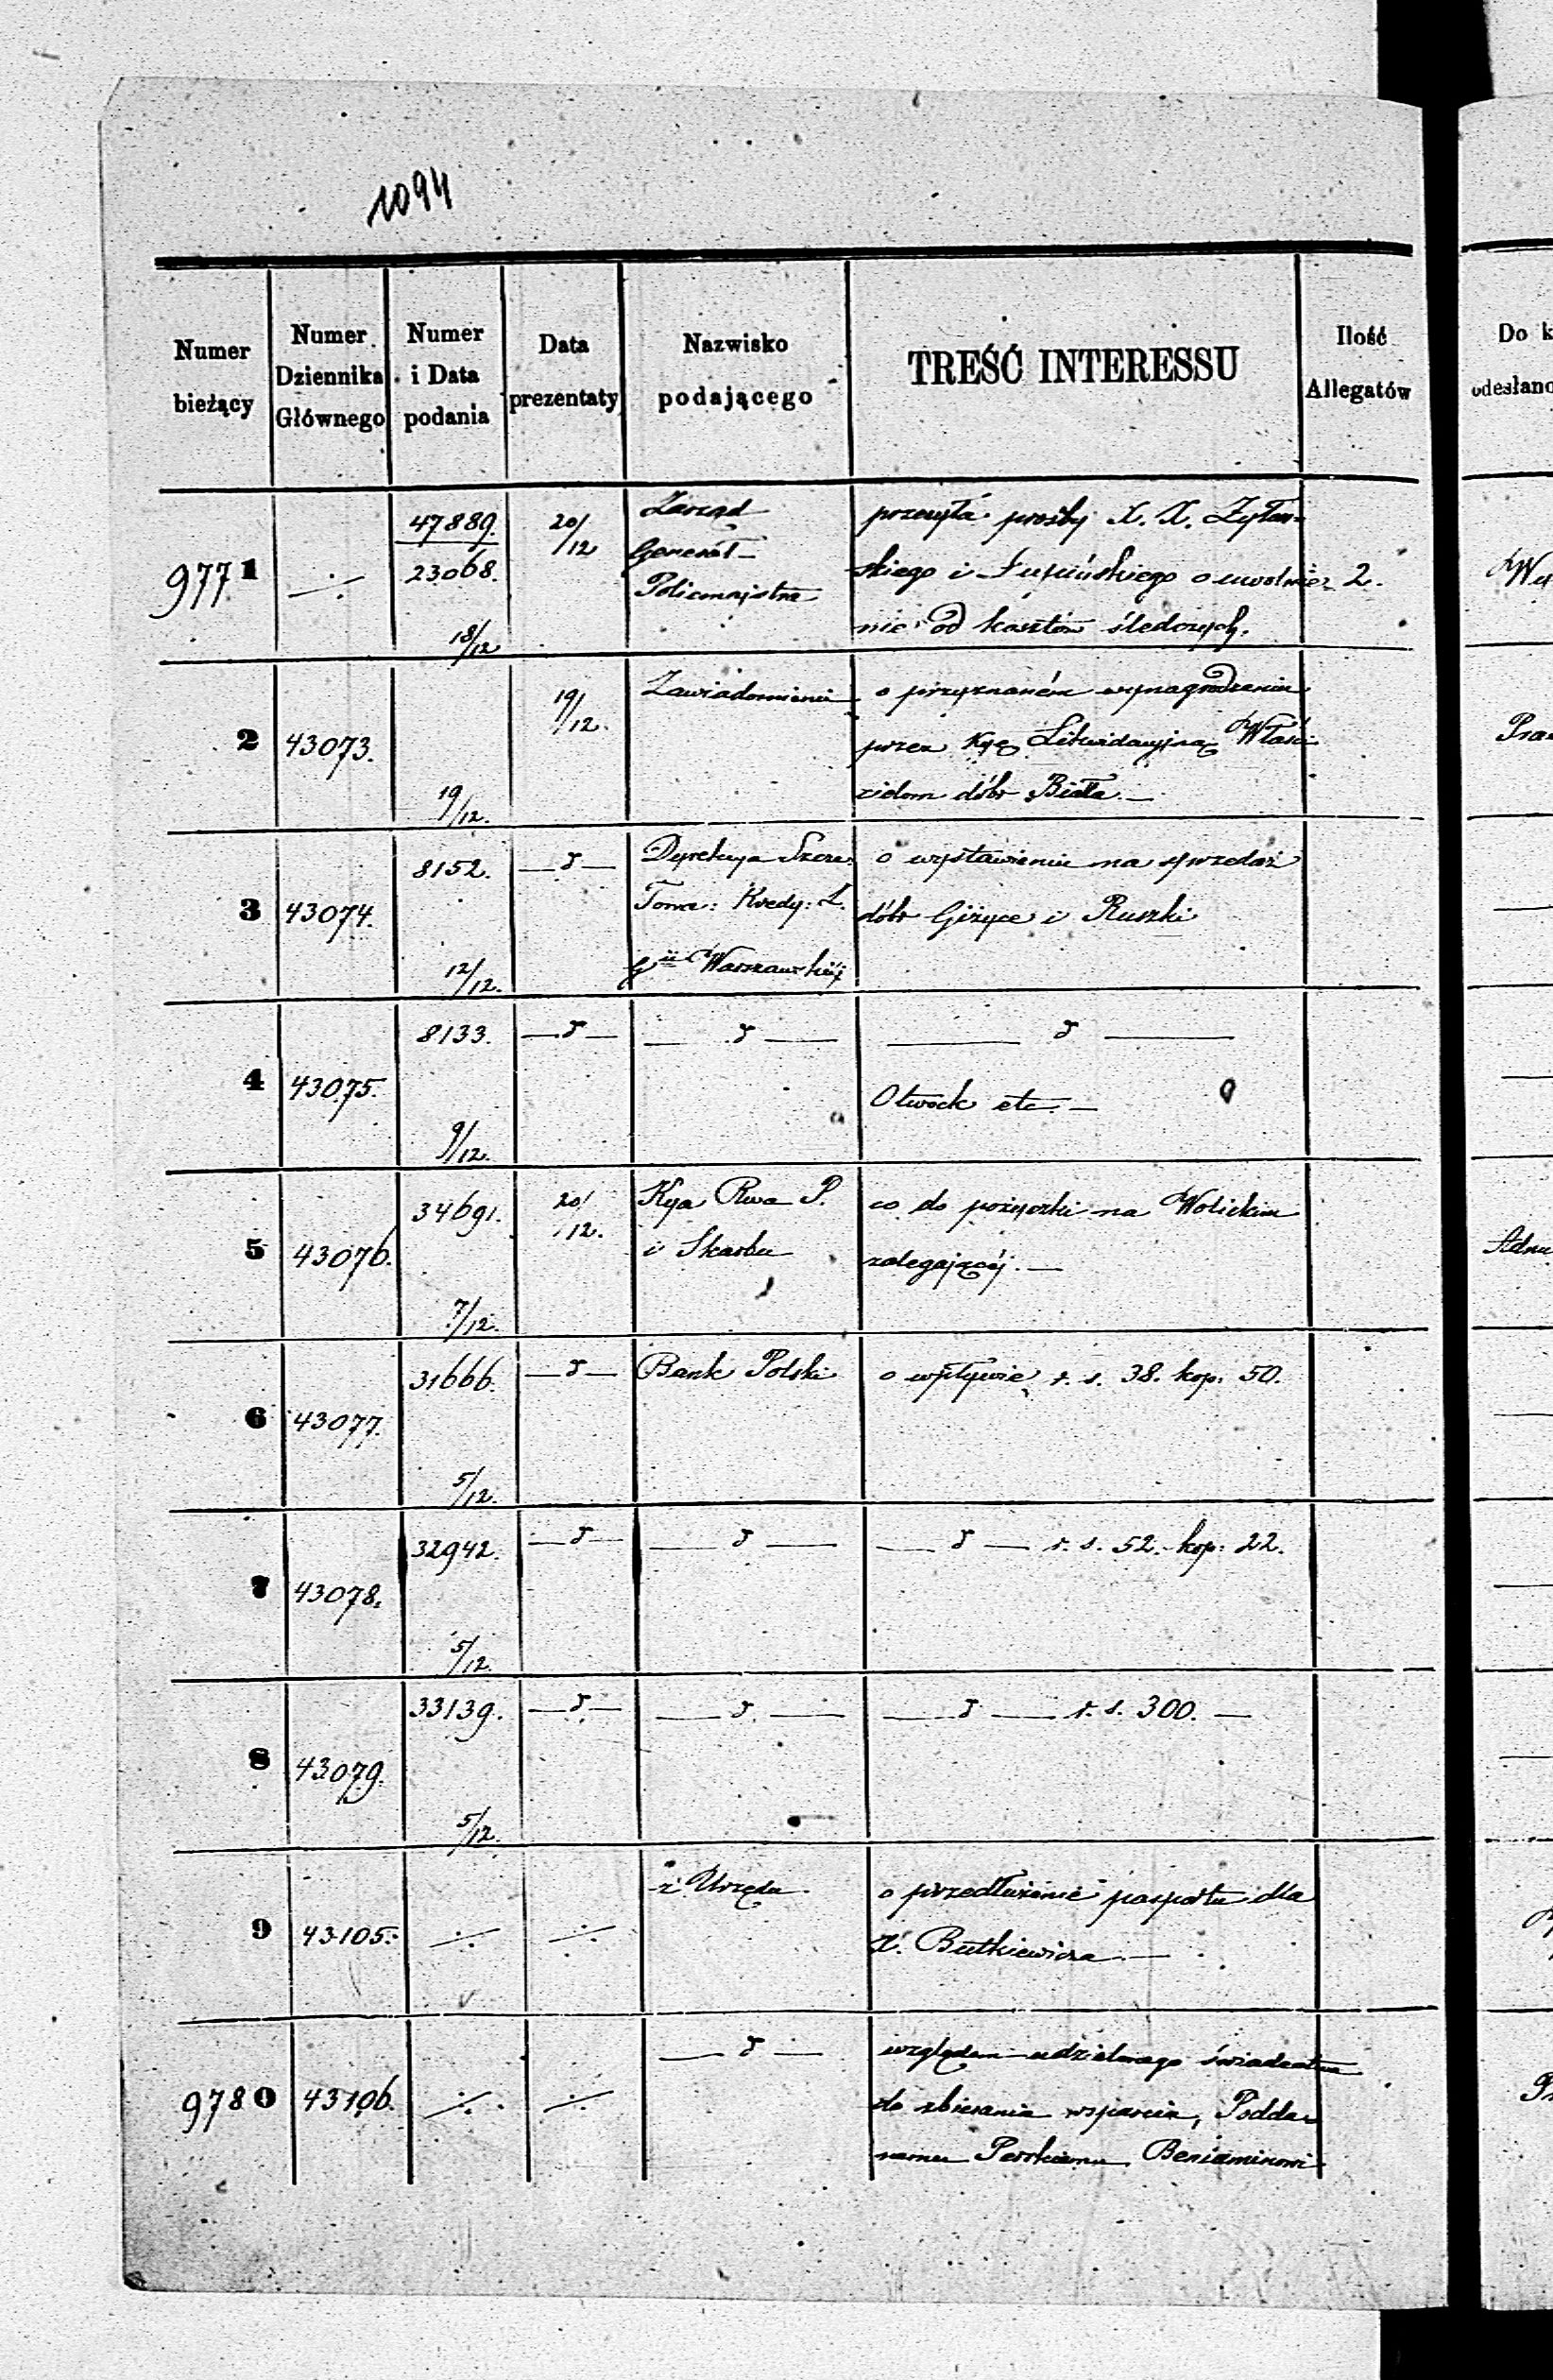 1094
Numer bieżący
Numer Dziennika Głównego
Numer i Data podania
Data prezentaty
Nazwisko podającego
TREŚĆ INTERESSU
Ilość Allegatów
Do k
odesłano
9771
47889.
23068.
18/12
20/12
Zarząd
Generał-
Policmajstra
przesyła prośby X. X. Żyłań-
skiego i Łupińskiego o uwolnie-
nie od kosztów śledczych.
2.
2
43073.
19/12.
19/12.
Zawiadomienie
o przyznaném wynagrodzeniu
przez Kyą Likwidacyjną Właści
cielom dóbr Biała. —
3
43074.
8152.
12/12.
— d —
Dyrekcya Szcze:
Towa: Kredy: Z.
Gii Warszawskiéj
o wystawieniu na sprzedaż
dóbr Giżyce i Ruszki
4
43075.
8133.
9/12.
— d —
— d —
— d —
Otwock etc. —
5
43076.
34691.
7/12.
20/12.
Kya Rwa P.
i Skarbu
co do pożyczki na Wolickim
zalegającéj. —
6
43077.
31666.
5/12.
— d —
Bank Polski
o wpływie r. s. 38. kop. 50.
7
43078.
32942.
5/12.
— d —
— d —
— d — r. s. 52. kop: 22.
8
43079.
33139.
5/12.
— d —
— d —
— d — r. s. 300. —
9
43105.
z Urzędu.
o przedłużenie paszportu dla
X. Butkiewicza. —
9780
43106.
— d —
względem udzielonego świadectwa
do zbierania wsparcia, Podda-
nemu Perskiemu Beniaminowi